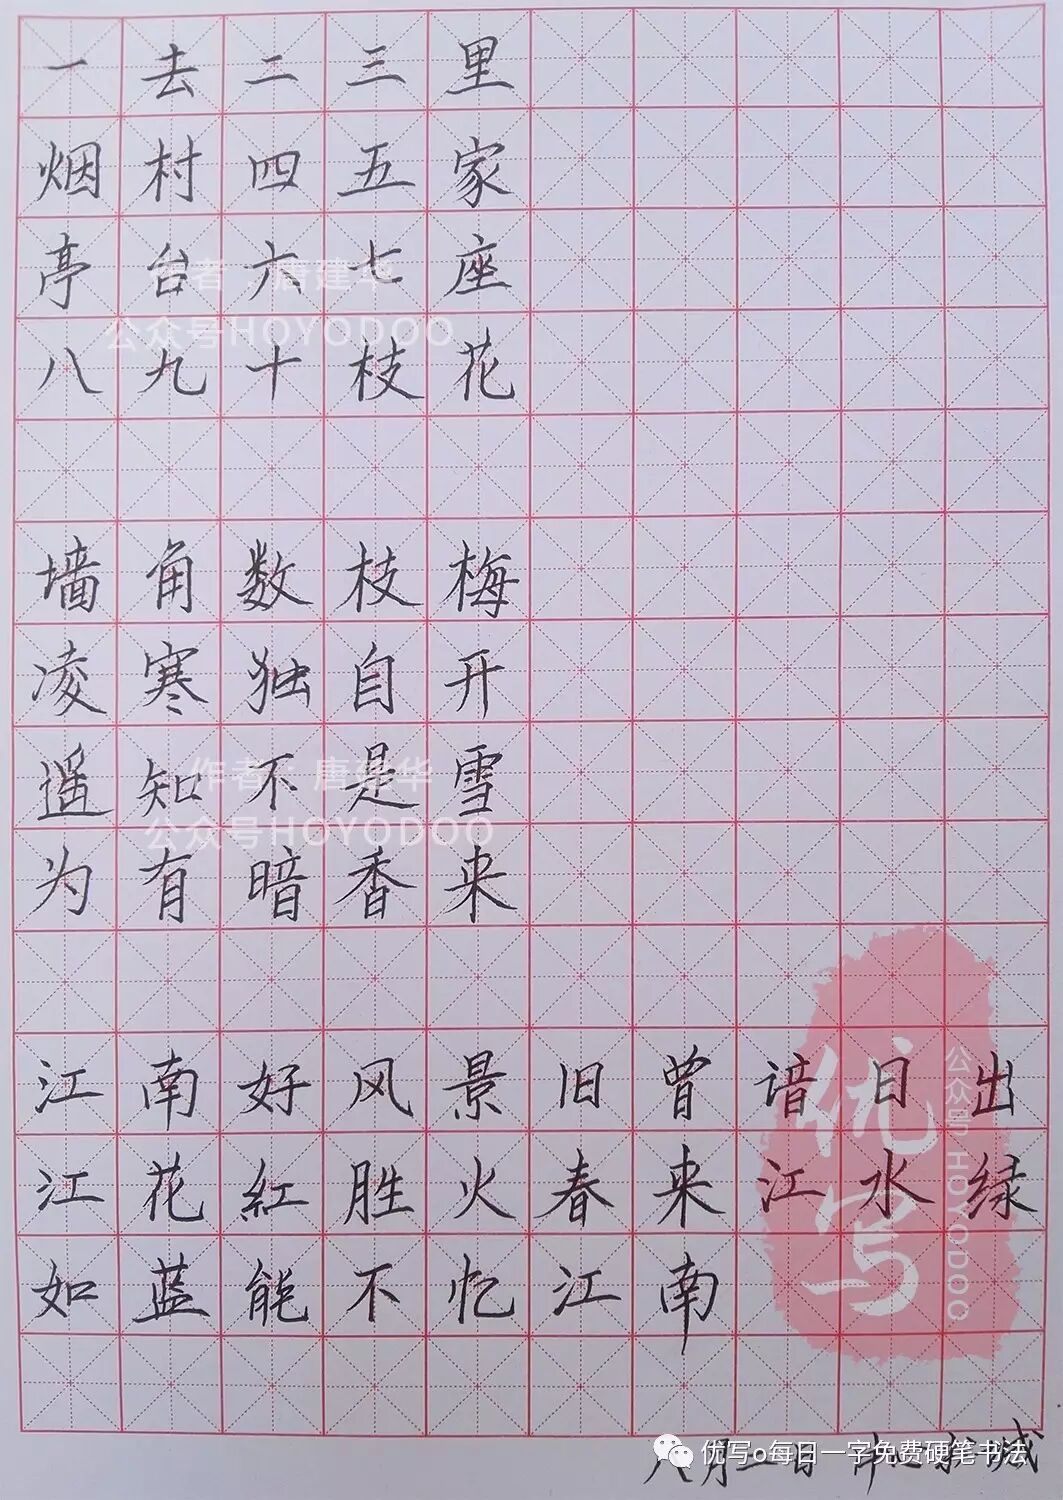 一去二三里
烟村四五家
亭台六七座
作者：唐建华
公众号HOYODOO
八九十枝花
墙角数枝梅
凌寒独自开
遥知不是雪
作者：唐建华
公众号HOYODOO
为有暗香来
江南好风景旧曾谙日出
江花红胜火春来江水绿
如蓝能不忆江南
优写
公众号HOYODOO
八月二日
优写o每日一字免费硬笔书法